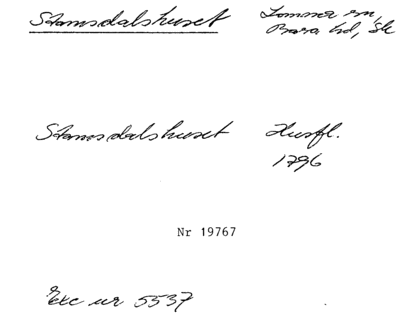 Stamsdalshuset Lomma sn,
Bara hd, Sk
Stamsdalshuset Husfl.
1796
Nr 19767
Exc ur 5537